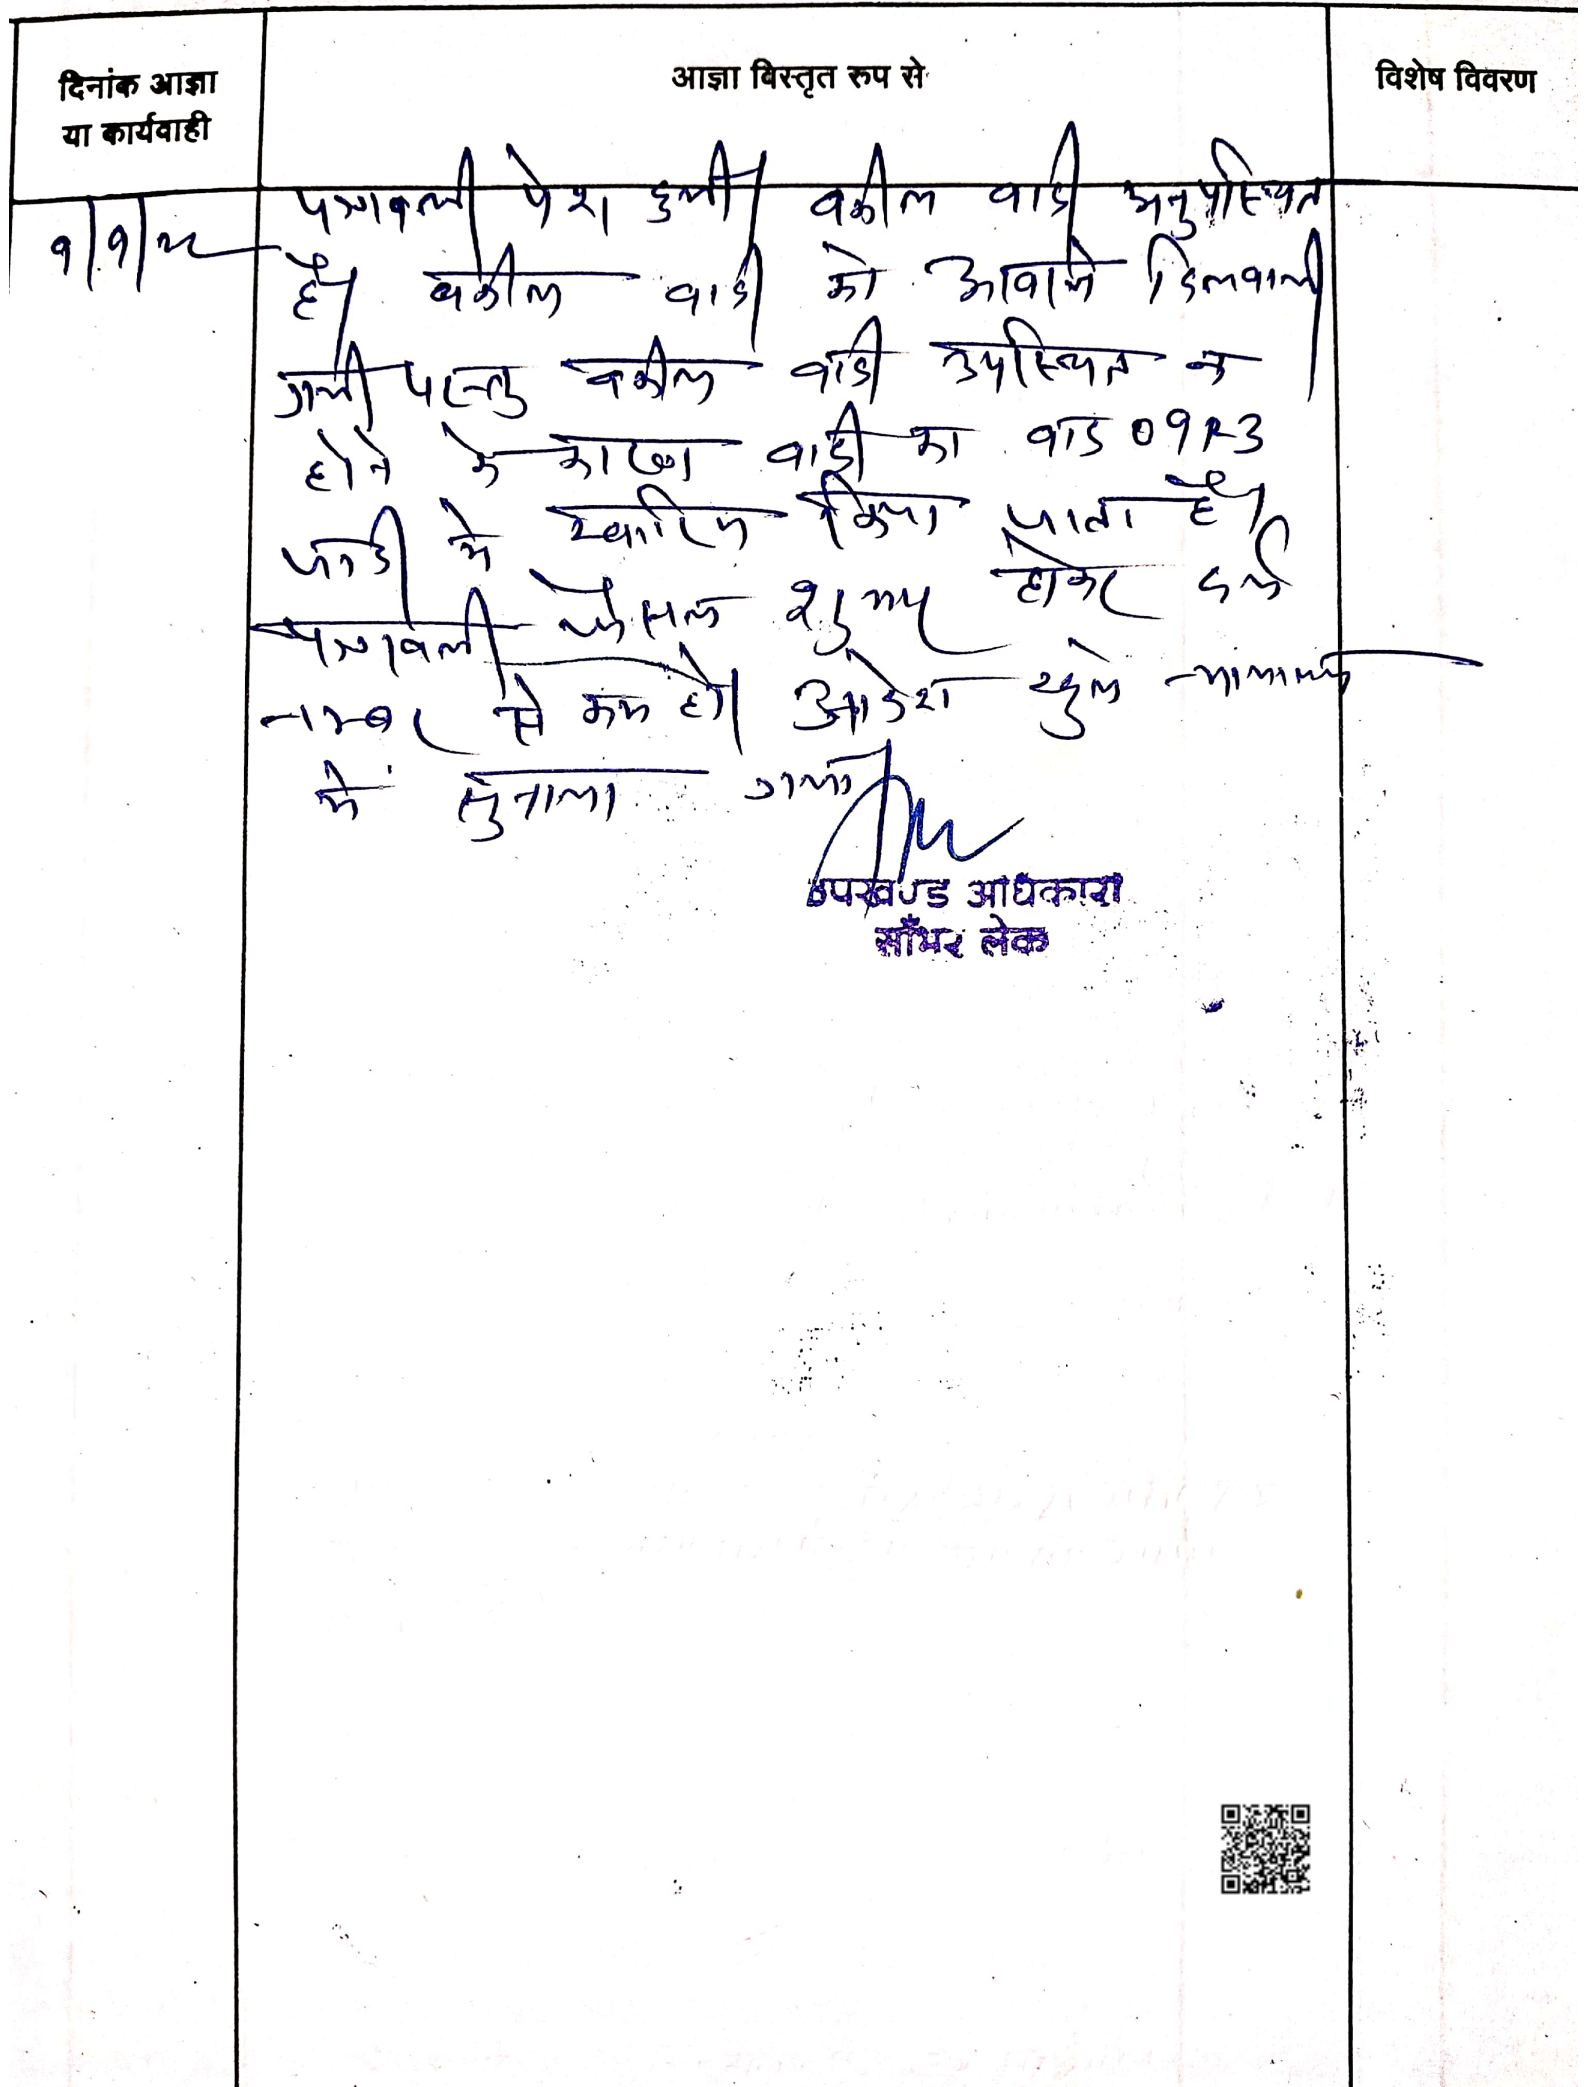 दिनांक आज्ञा
या कार्यवाही
आज्ञा विस्तृत रूप से
विशेष विवरण
पत्रावली पेश हुयी। वकील वादी अनुपस्थित
है। वकील वादी को आवाजे दिलवायी
गयी परन्तु वकील वादी उपस्थित न
होने के कारण वादी का वाद 09R3
में खारिज किया जाता है।
पत्रावली फैसल शुमार होकर दर्ज
नम्बर से कम हो। आदेश खुले न्यायालय
में सुनाया गया।
उपखण्ड अधिकारी
साँभर लेक